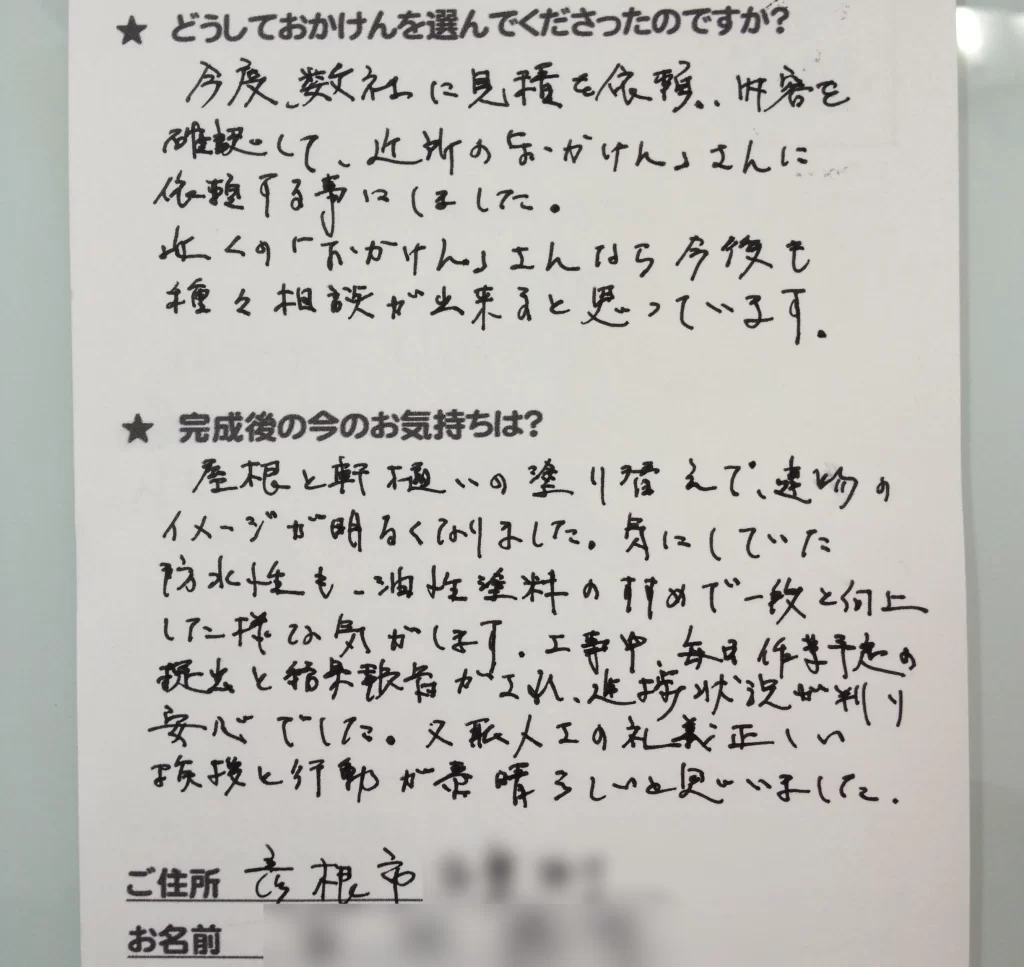 ★ どうしておかけんを選んでくださったのですか?
今度、数社に見積を依頼、内容を
確認して、近所の「おかけん」さんに
依頼する事にしました。
近くの「おかけん」さんなら今後も
種々相談が出来ると思っています。
★ 完成後の今のお気持ちは?
屋根と軒樋いの塗り替えで、建物の
イメージが明るくなりました。気にしていた
防水性も、油性塗料のすすめで一段と向上
した様な気がします。工事中、毎日作業予定の
提出と結果報告がされ、進捗状況が判り
安心でした。又職人工の礼義正しい
挨拶と行動が素晴らしいと思いました。
ご住所 彦根市
お名前